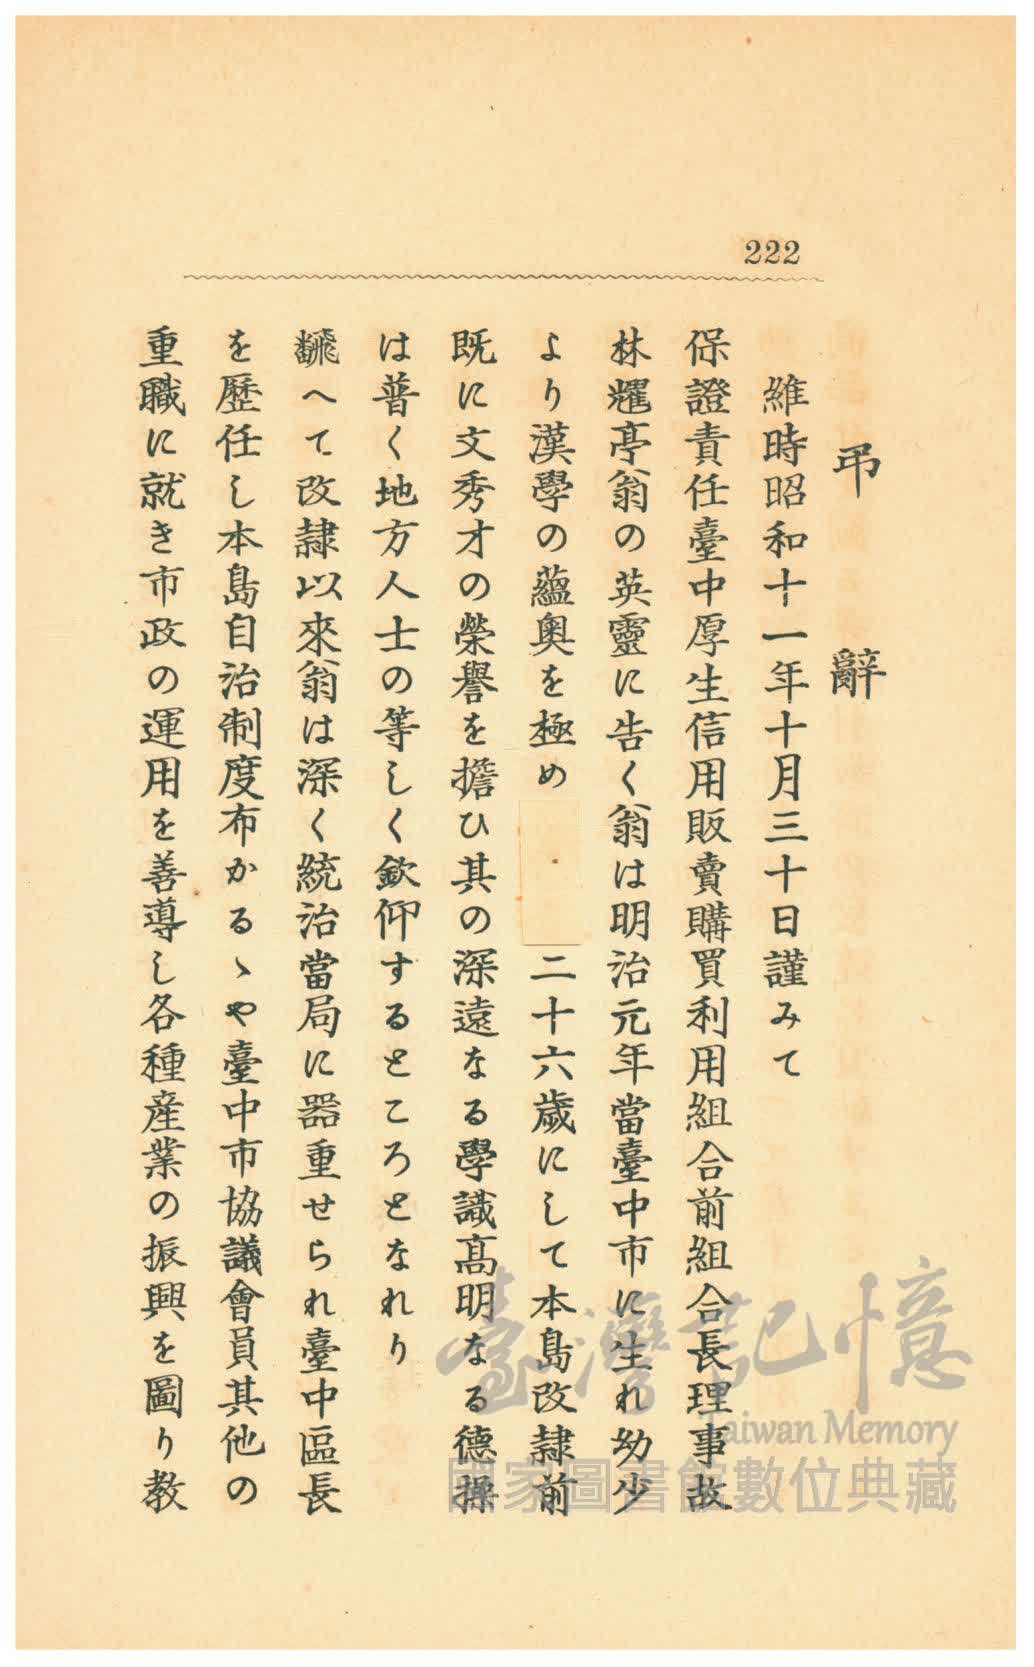 222
弔辭
維時昭和十一年十月三十日謹みて
保證責任臺中厚生信用販賣購買利用組合前組合長理事故
林耀亭翁の英靈に告く翁は明治元年當臺中市に生れ幼少
より漢學の蘊奧を極め二十六歲にして本島改隸前
既に文秀才の榮譽を擔ひ其の深遠なる學識高明なる德操
は普く地方人士の等しく欽仰するところとなれり
飜へて改隸以來翁は深く統治當局に器重せられ臺中區長
を歷任し本島自治制度布かるゝや臺中市協議會員其他の
重職に就き市政の運用を善導し各種産業の振興を圖り教
臺灣記憶
Taiwan Memory
國家圖書館數位典藏